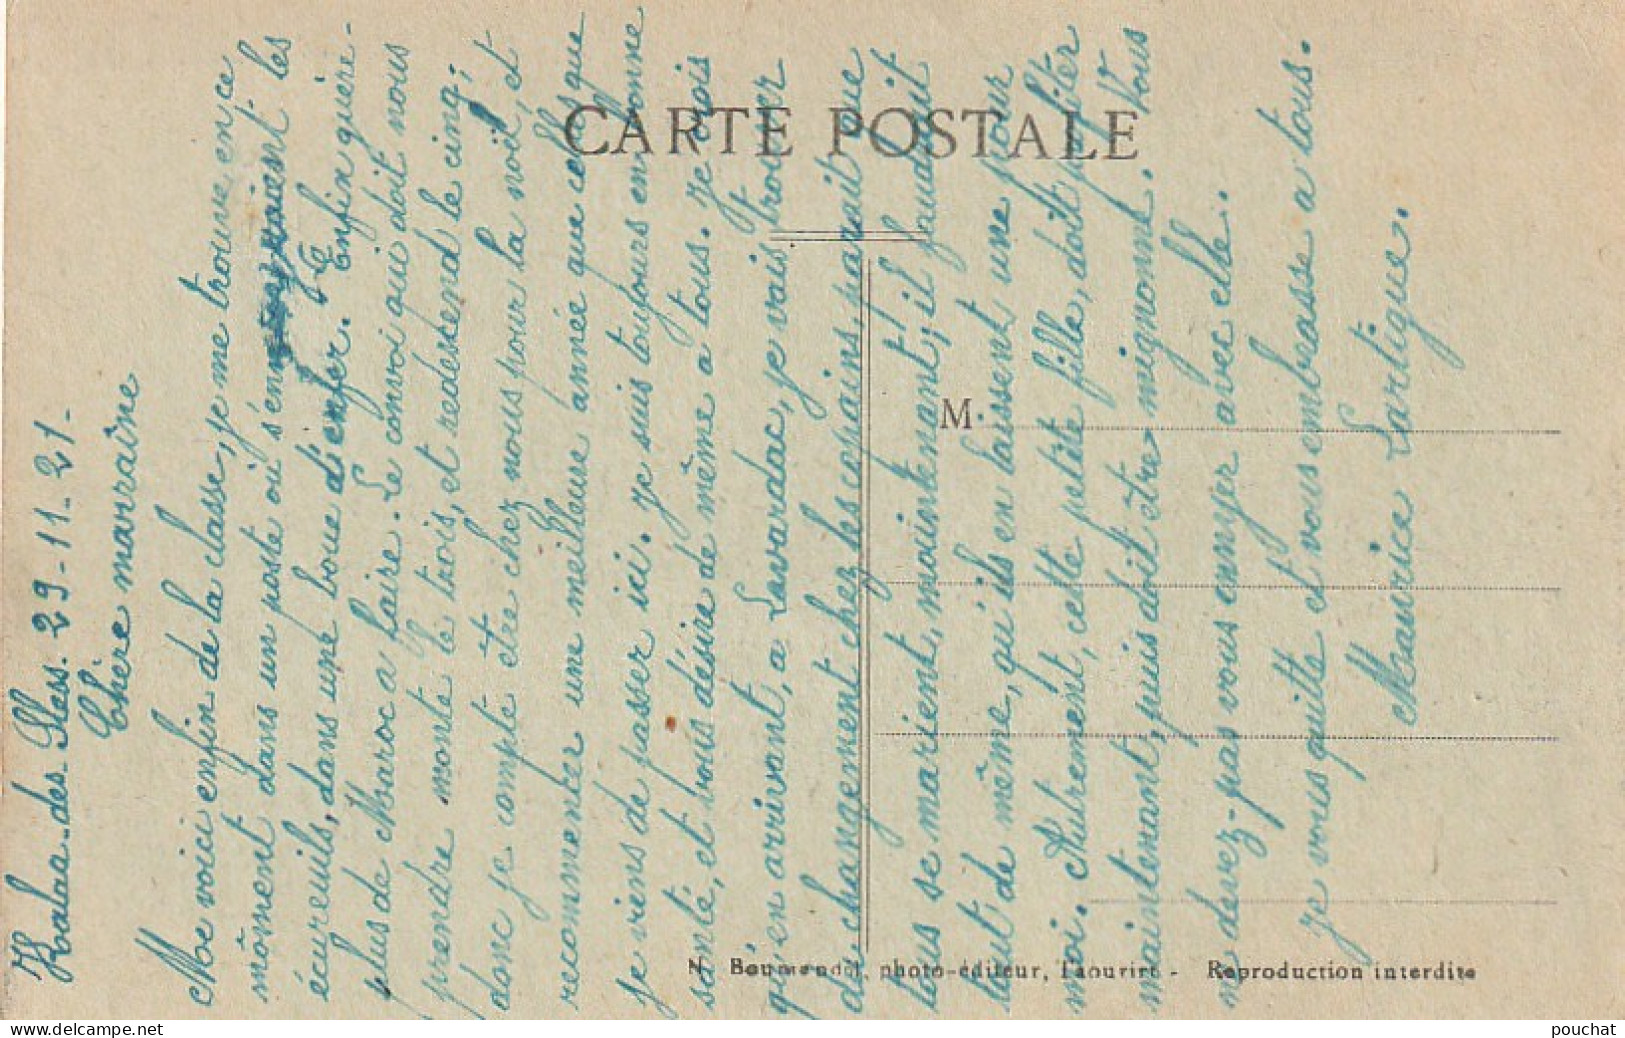 Kalaa-des-Sless. 29-11-21-
Chère marraine
Me voici enfin de la classe, je me trouve en ce
mônent dans un poste où s'ennuiraient les
écureuils, dans une boue d'enfer. Enfin guère
plus de Maroc a faire. Le convoi qui doit nous
prendre monte le trois, et redescend le cinq;
donc je compte être chez nous pour la noël, et
recommencer une meilleure année que celles que
je viens de passer ici. Je suis toujours en bonne
santé, et vous désire de même a tous. Je crois
qu'en arrivant, a Lavardac, je vais trouver
du changement chez les copains, parait que
tous se marient, maintenant, il faudrait
tout de même, qu'ils en laissent une pour
moi. Autrement, cette petite fille, doit profiter
maintenant, puis doit être mignonne. Vous
ne devez-pas vous ennyer avec elle.
Je vous quitte et vous embrasse a tous.
Maurice Lartigue.
CARTE POSTALE
M.
Boumendil, photo-éditeur, Taourirt - Reproduction interdite
www.delcampe.net
pouchat